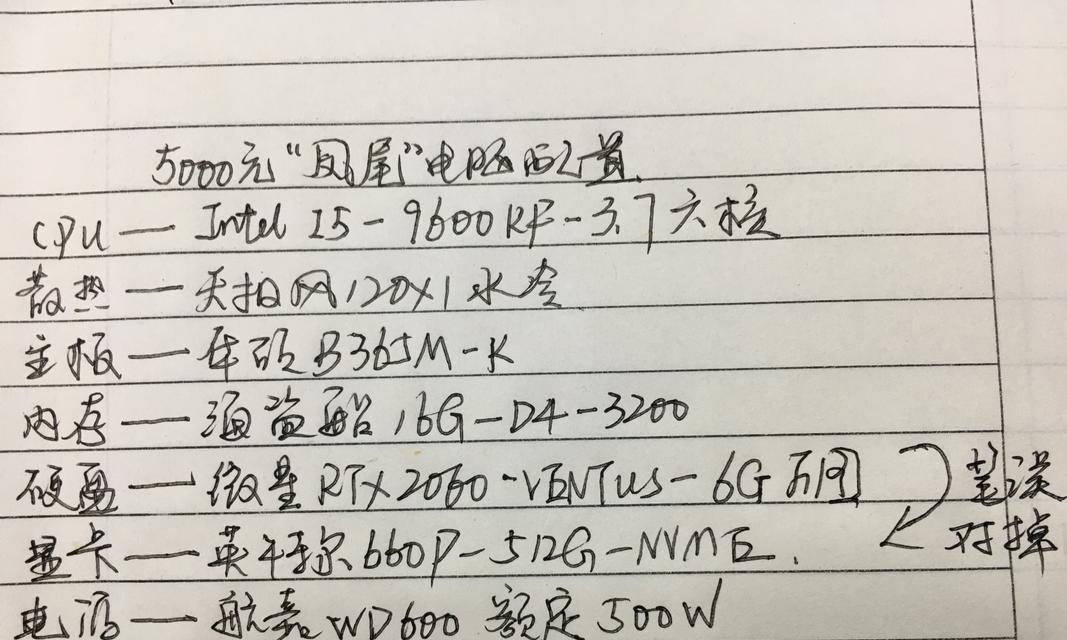 5000元“凤尾”电脑配置
CPU — Intel I5-9600KF-3.7六核
散热 — 天极风120X1水冷
主板 — 华硕B365M-K
内存 — 海盗船16G-D4-3200
硬盘 — 微星RTX2060-VENTUS-6G万图 笔误
显卡 — 英特尔660P-512G-NVME. 对掉
电源 — 航嘉WD600 额定500W